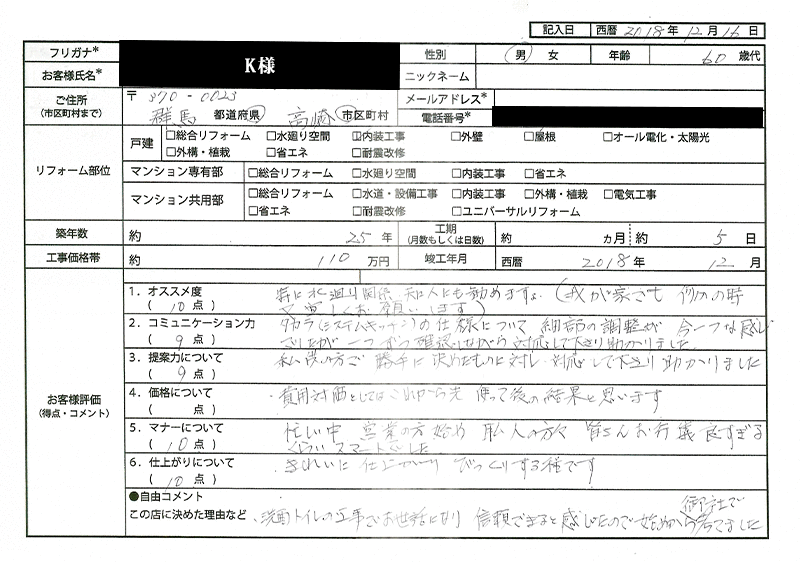 記入日 西暦 2018年 12月 16日
フリガナ* K様 性別 男 女 年齢 60歳代
お客様氏名* ニックネーム
ご住所 (市区町村まで) 〒370-0023 メールアドレス*
群馬 都道府県 高崎 市区町村 電話番号*
リフォーム部位
戸建 □総合リフォーム □水廻り空間 □内装工事 □外壁 □屋根 □オール電化・太陽光
□外構・植栽 □省エネ □耐震改修
マンション専有部 □総合リフォーム □水廻り空間 □内装工事 □省エネ
マンション共用部 □総合リフォーム □水道・設備工事 □内装工事 □外構・植栽 □電気工事
□省エネ □耐震改修 □ユニバーサルリフォーム
築年数 約 25年 工期 (月数もしくは日数) 約 ヵ月 約 5日
工事価格帯 約 110万円 竣工年月 西暦 2018年 12月
お客様評価 (得点・コメント)
1．オススメ度 特に水廻り関係 友人にも勧めますよ。(我が家でも 何かの時
(10点) 又宜しくお願いします)
2．コミュニケーション力 タカラ(システムキッチン)の仕様について 細部の調整が 今一つな感じ
(9点) でしたが 一つずつ確認しながら対応して下さり助かりました
3．提案力について 私共の方で 勝手に決めたものに対し・対応して下さり 助かりました
(9点)
4．価格について ・費用対価としてはこれから先 使って後の結果と思います
(点)
5．マナーについて 忙しい中 営業の方始め 職人の方々 皆さんお行儀良すぎる
(10点) くらい スマートでした
6．仕上がりについて ・きれいに仕上がり びっくりする程です
(10点)
●自由コメント 御社で
この店に決めた理由など ・洗面トイレの工事でお世話になり 信頼できると感じたので始めから考てました